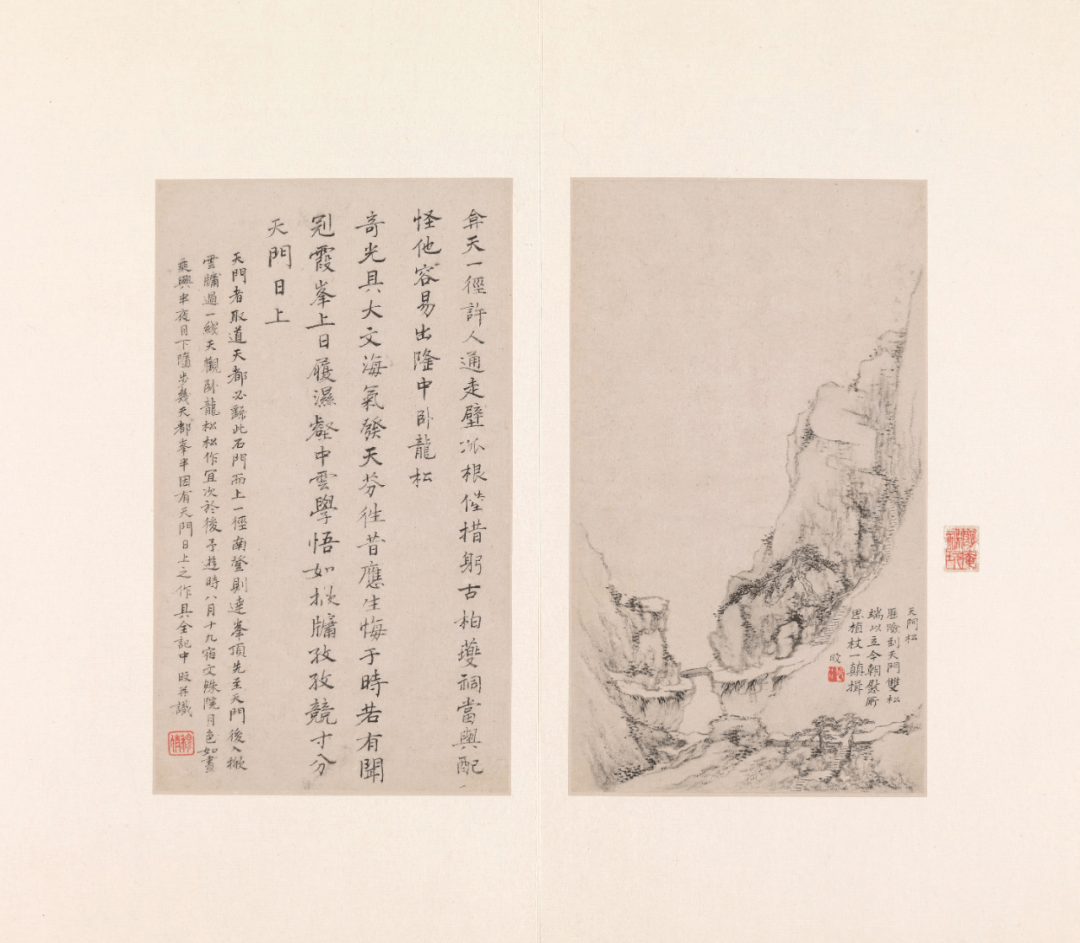 天門松
歷險到天門雙松
端以立今朝慰所
思植杖一顛揖
昹
弇天一徑許人通走壁派根倐措躬古柏夔祠當與配
怪他容易出隆中卧龍松
奇光具大文海氣發天芬徃昔應生悔于時若有聞
剜霞峯上日履濕壑中雲學悟如牖孜孜競寸分
天門日上
天門者取道天都必歸此石門而上一徑南登則達峯頂先至天門後入
雲牖過一綫天觀卧龍松松作宜次於後予遊時八月十九宿文殊院月色如晝
乘興半夜月下隨步幾天都峯半因有天門日上之作具全記中 并識